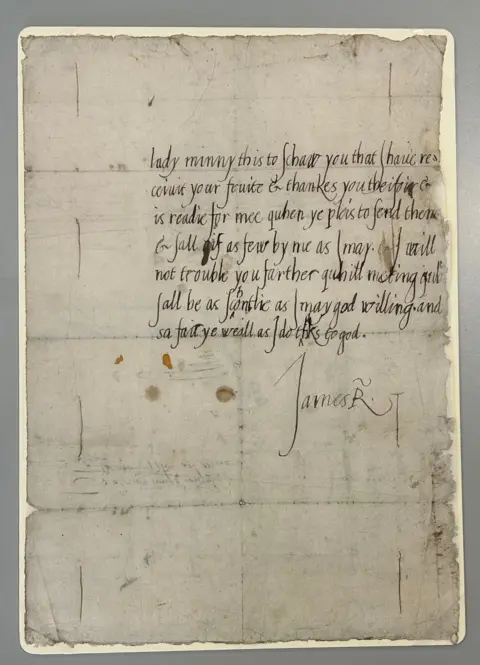 lady minny this to schaw you that I haue re=
ceiuit your fruite & thankes you thairfoire &
is readie for mee quhen ye pleis to send thame
& sall gif as few by me as I may. & I will
not trouble you farther quhill meting quhilk
sall be as schortlie as I may god willing. and
sa fair ye weill as I do thankis to god.
James R.